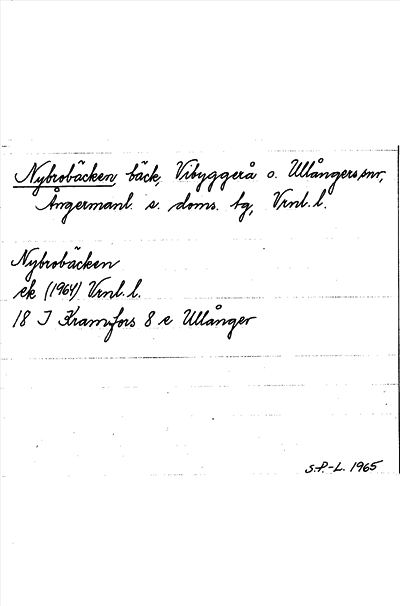 Nybrobäcken, bäck, Vibyggerå o. Ullångers snr,
Ångermanl. s. doms. tg, Vrnl. l.
Nybrobäcken
ek (1964) Vrnl. l.
18 J Kramfors 8 e Ullånger
S.P.-L. 1965